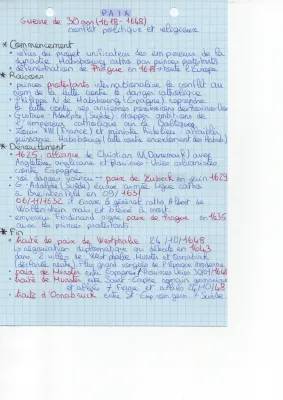 PAIX
Guerre de 30 ans (1618-1648)
conflit politique et religieux
* Commencement
refus du projet unificateur des empereurs de la
dynastie Habsbourg catho par princes protestants
défenestration de Prague en 1618 toute l'Europe
* Raisons
princes protestants internationalise le conflit au
nom de la lutte contre le danger catholique
Philippe IV de Habsbourg (Espagne) reprendre
la lutte contre ses anciennes possessions
Gustave-Adolphe (Suède) stopper ambitions de
l'empereur catholique en la Baltique
Louis XIII (France) et ministre Richelieu affaiblir
puissance Habsbourg (lutte contre encerclement des Habsb)
* Déroulement
1625: alliance de Christian IV (Danemark) avec
Angleterre anglicane et Provinces-Unies calvinistes
contre Espagne
roi danois vaincu → paix de Lübeck en juin 1629
G. Adolphe (Suède) écrase armée ligue catho
à Breitenfeld en 09/1631
06/11/1632 il écrase le général catho Albert de
Wallenstein mais est blessé à mort
empereur Ferdinand signe paix de Prague en 1635
avec les princes protestants
* Fin
traité de paix de Westphalie 24/10/1648
négociation diplomatique qui débute en 1643
dans 2 villes de Westphalie Munster et Osnabrück
plus grand congrès de l'époque moderne
paix de Munster entre Espagne/Provinces Unies 30/01/1648
traité de Munster entre Saint-Empire romain germanique
et alliés + France et alliés 24/10/48
traité d'Osnabruck entre St Emp rom germ + Suède